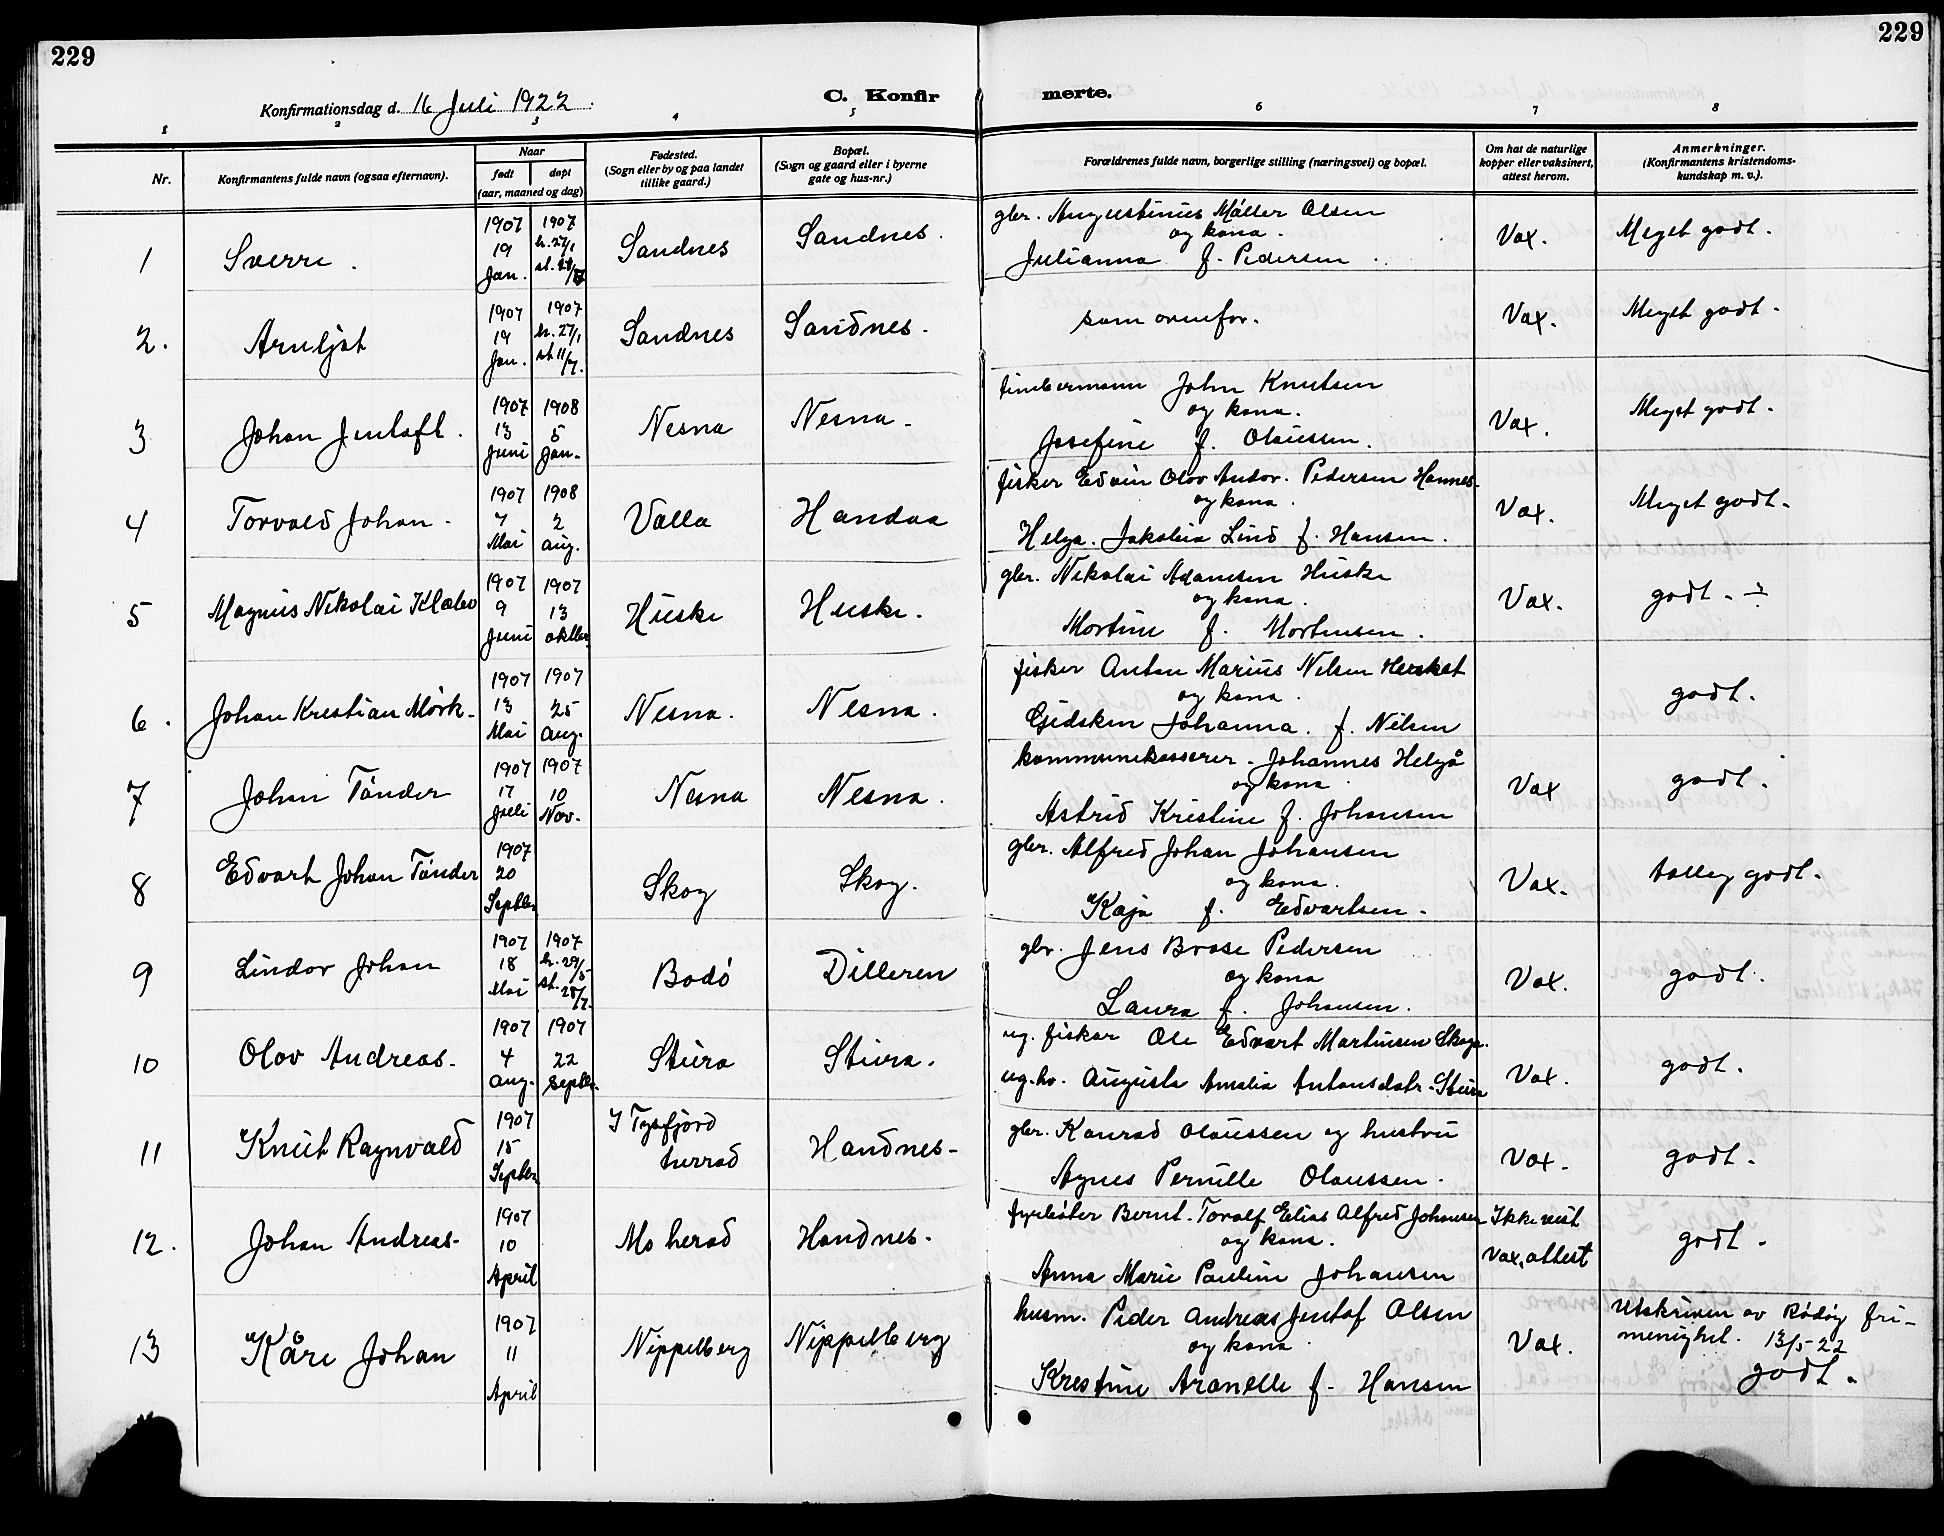 229
229
Konfirmationsdag d. 16 Juli 1922.
C. Konfir
merte.
1 2 3 4 5 6 7 8
Nr.
Konfirmantens fulde navn (ogsaa efternavn).
Naar
født
døpt
(aar, maaned og dag)
Fødested.
(Sogn eller by og paa landet
tillike gaard.)
Bopæl.
(Sogn og gaard eller i byerne
gate og hus-nr.)
Forældrenes fulde navn, borgerlige stilling (næringsvei) og bopæl.
Om hat de naturlige
kopper eller vaksinert,
attest herom.
Anmerkninger.
(Konfirmantens kristendoms-
kundskap m. v.).
1 Sverre. 1907 19 Jan. 1907 h. 27/1 st. Sandnes Sandnes.
gbr. Augustinus Møller Olsen
og kona.
Julianna f. Pedersen.
Vax. Meget godt.
2. Arnljot 1907 19 Jan. 1907 h. 27/1 st 11/7. Sandnes Sandnes.
som ovenfor.
Vax. Meget godt.
3 Johan Jentoft. 1907 13 Juni 1908 5 Jan. Nesna Nesna.
timbermann John Knutsen
og kona.
Josefine f. Olaussen.
Vax. Meget godt.
4 Torvald Johan. 1907 7 Mai 1908 2 Aug. Valla Handaa
fisker Edvin Olov Andor. Pedersen Hannes-
og kona.
Helga. Jakobia Lind f. Hansen.
Vax. Meget godt.
5 Magnus Nikolai Klæbo 1907 9 Juni 1907 13 oktbr. Huske Huske.
gbr. Nikolai Adamsen Huske
og kona.
Martine f. Mortensen.
Vax. godt. ÷
6. Johan Kristian Mørk. 1907 13 Mai 1907 25 Aug. Nesna. Nesna.
fisker Anton Marius Nilsen
og kona.
Gidsken Johanna. f. Nilsen
godt.
7 Johan Tønder 1907 17 Juli 1907 10 Nov. Nesna Nesna.
kommunekasserer. Johannes Helgå
og kona
Astrid Kristine f. Johansen
Vax godt.
8 Edvart Johan Tønder 1907 20 Septbr. Skog Skog.
gbr. Alfred Johan Johansen
og kona.
Kaja f. Edvartsen.
Vax. tolleg godt.
9 Lindor Johan 1907 18 Mai 1907 h. 29/5 st. 28/7. Bodø Dilleren
gbr. Jens Brose Pedersen
og kona
Laura f. Johansen.
Vax. godt.
10 Olov Andreas. 1907 4 Aug. 1907 22 Septbr. Stura Stura.
ug. fisker Ole Edvart Martinsen Skoga.
ug. kv. Augusta Amalia Antonsdatr. Stura
Vax. godt.
11 Knut Ragnvald 1907 15 Septbr. I Tysfjord herrad Handnes.
gbr. Konrad Olaussen og hustru
Agnes Pernille Olaussen.
Vax. godt.
12. Johan Andreas. 1907 10 April Mo herad Handnes.
fyrbøter Bernt. Toralf Elias Alfred Johansen
og kona.
Anna Marie Pauline Johansen
Ikke vist
Vax. attest
godt.
13 Kåre Johan 1907 11 April Nippelberg Nippelberg
husm. Peder Andreas Jentof Olsen
og kona
Krestine Aranelle f. Hansen
Vax. Utskriven av Rødøy fri-
menighet. 13/5-22
godt.